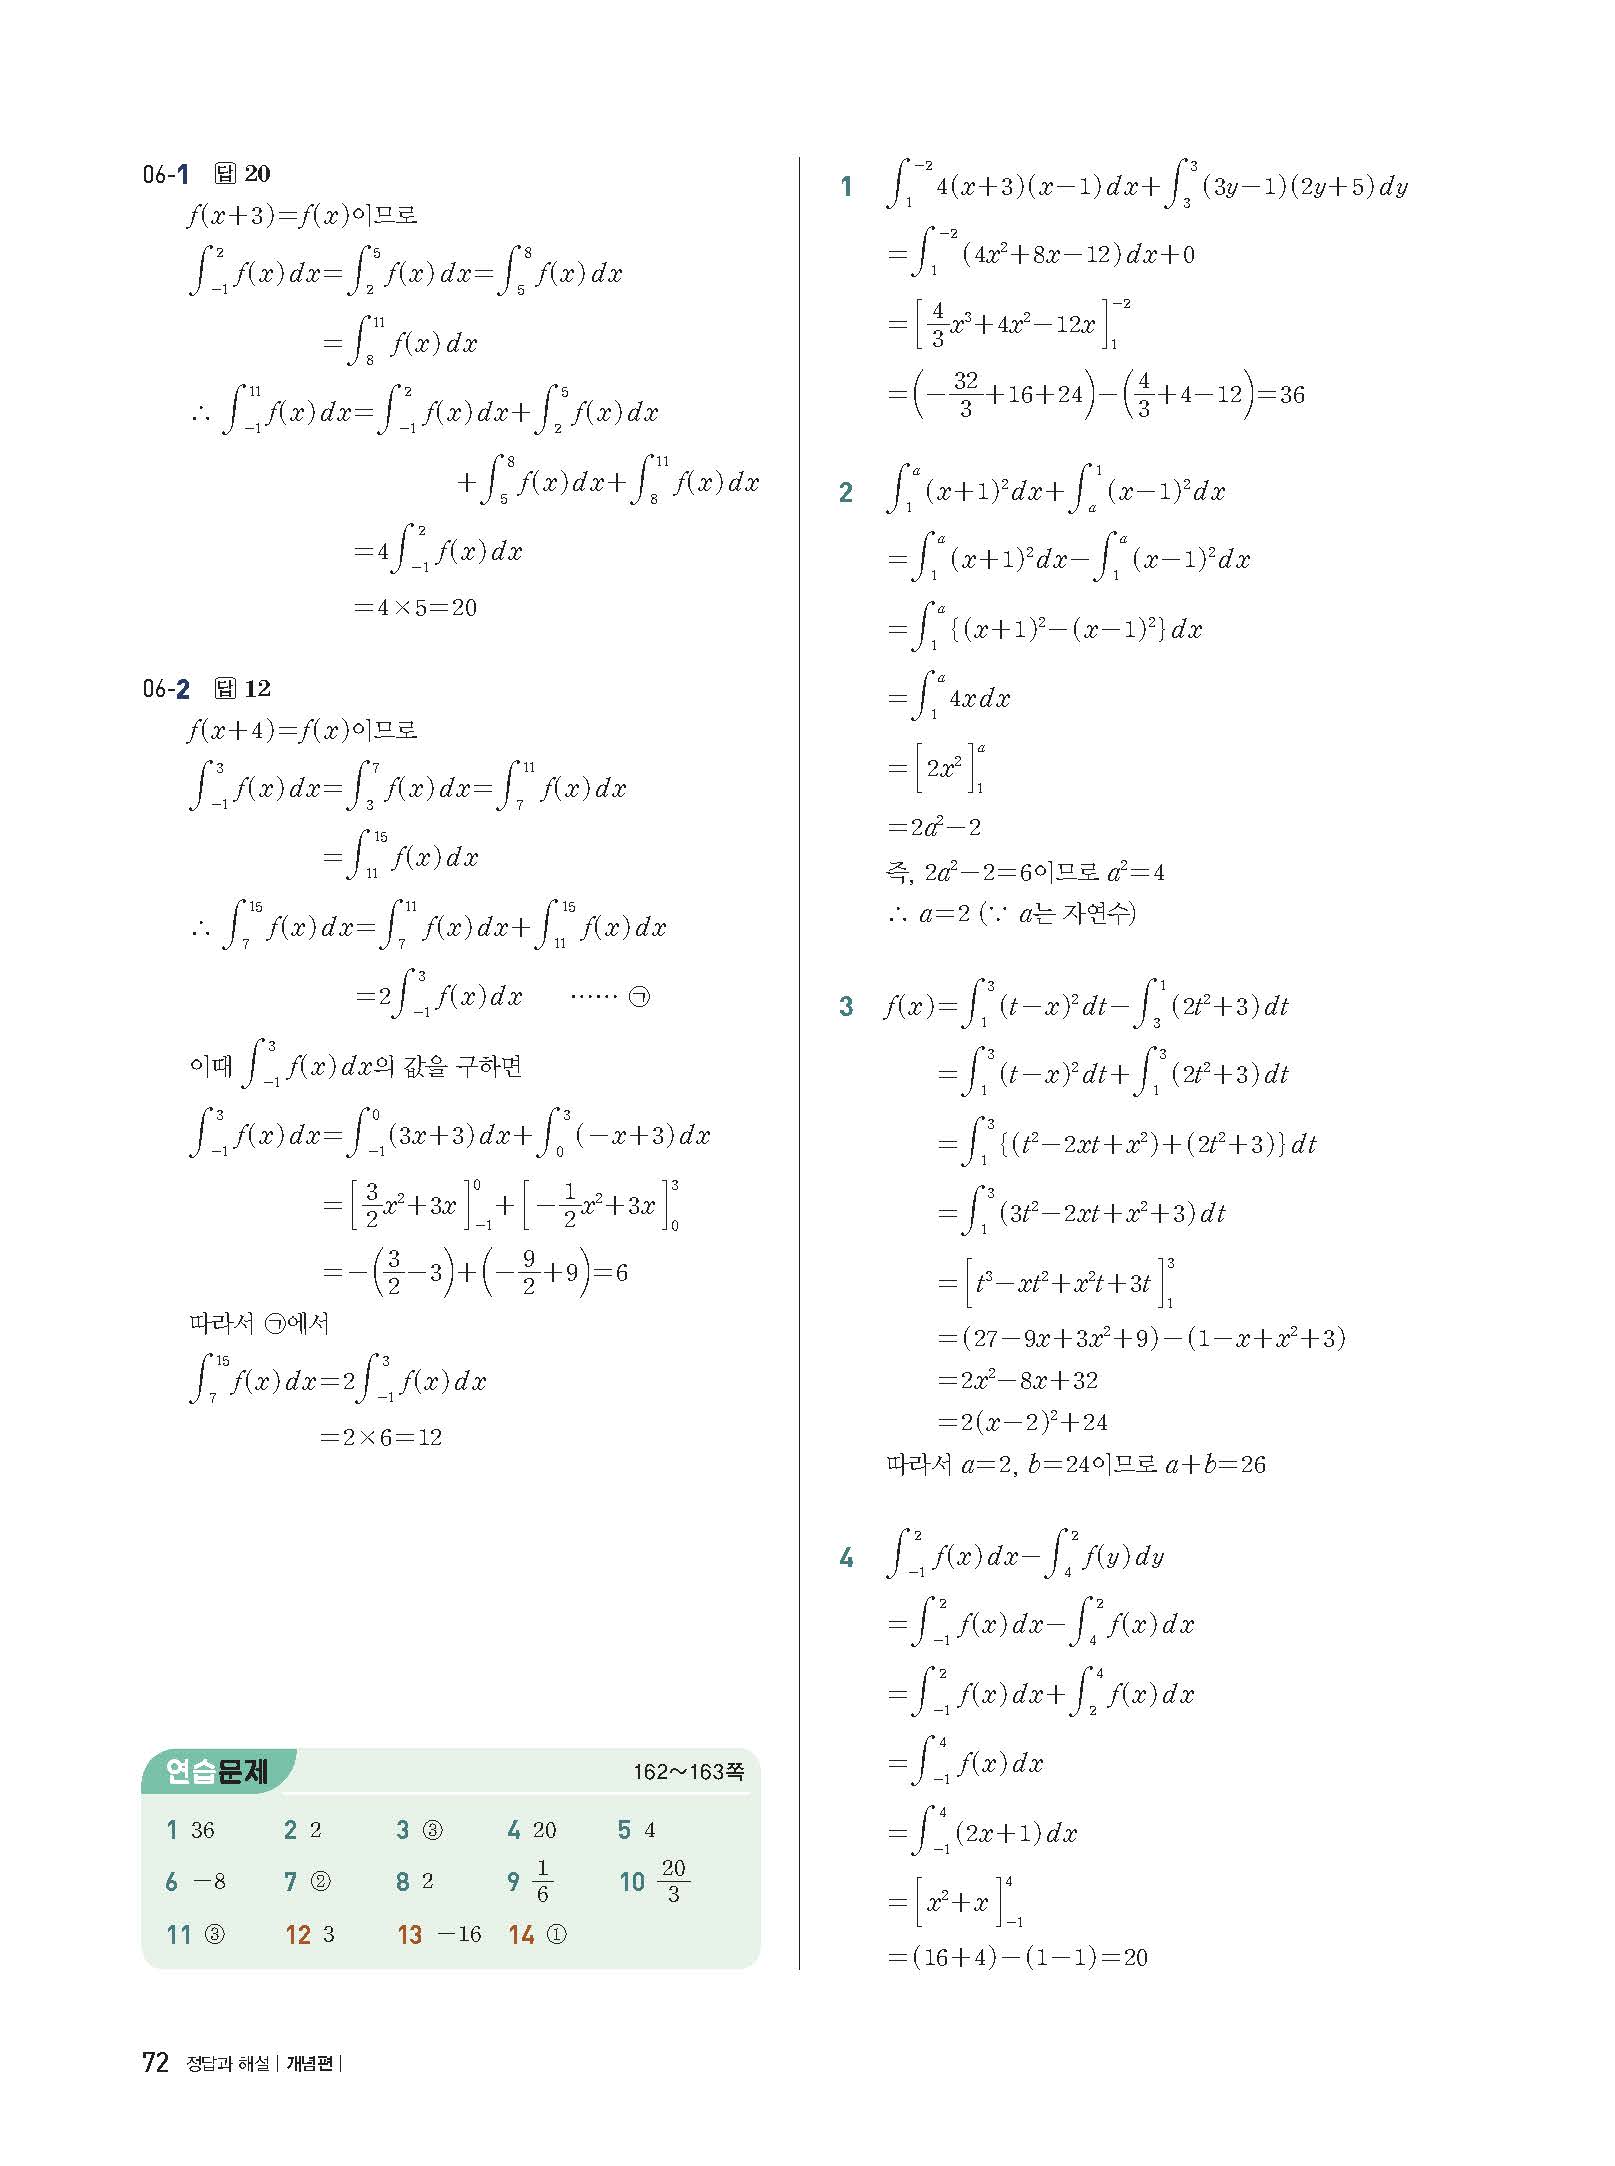 06-1 답 20
f(x+3)=f(x)이므로
∫_{-1}^{2} f(x)dx=∫_{2}^{5} f(x)dx=∫_{5}^{8} f(x)dx
=∫_{8}^{11} f(x)dx
∴ ∫_{-1}^{11} f(x)dx=∫_{-1}^{2} f(x)dx+∫_{2}^{5} f(x)dx
+∫_{5}^{8} f(x)dx+∫_{8}^{11} f(x)dx
=4∫_{-1}^{2} f(x)dx
=4×5=20
06-2 답 12
f(x+4)=f(x)이므로
∫_{-1}^{3} f(x)dx=∫_{3}^{7} f(x)dx=∫_{7}^{11} f(x)dx
=∫_{11}^{15} f(x)dx
∴ ∫_{7}^{15} f(x)dx=∫_{7}^{11} f(x)dx+∫_{11}^{15} f(x)dx
=2∫_{-1}^{3} f(x)dx …… ㉠
이때 ∫_{-1}^{3} f(x)dx의 값을 구하면
∫_{-1}^{3} f(x)dx=∫_{-1}^{0} (3x+3)dx+∫_{0}^{3} (-x+3)dx
=[3/2 x²+3x]_{-1}^{0}+[-1/2 x²+3x]_{0}^{3}
=-(3/2-3)+(-9/2+9)=6
따라서 ㉠에서
∫_{7}^{15} f(x)dx=2∫_{-1}^{3} f(x)dx
=2×6=12
연습문제 162~163쪽
1 36 2 2 3 ③ 4 20 5 4
6 -8 7 ② 8 2 9 1/6 10 20/3
11 ③ 12 3 13 -16 14 ①
1 ∫_{1}^{-2} 4(x+3)(x-1)dx+∫_{3}^{3} (3y-1)(2y+5)dy
=∫_{1}^{-2} (4x²+8x-12)dx+0
=[4/3 x³+4x²-12x]_{1}^{-2}
=(-32/3+16+24)-(4/3+4-12)=36
2 ∫_{1}^{a} (x+1)²dx+∫_{a}^{1} (x-1)²dx
=∫_{1}^{a} (x+1)²dx-∫_{1}^{a} (x-1)²dx
=∫_{1}^{a} {(x+1)²-(x-1)²}dx
=∫_{1}^{a} 4xdx
=[2x²]_{1}^{a}
=2a²-2
즉, 2a²-2=6이므로 a²=4
∴ a=2 (∵ a는 자연수)
3 f(x)=∫_{1}^{3} (t-x)²dt-∫_{3}^{1} (2t²+3)dt
=∫_{1}^{3} (t-x)²dt+∫_{1}^{3} (2t²+3)dt
=∫_{1}^{3} {(t²-2xt+x²)+(2t²+3)}dt
=∫_{1}^{3} (3t²-2xt+x²+3)dt
=[t³-xt²+x²t+3t]_{1}^{3}
=(27-9x+3x²+9)-(1-x+x²+3)
=2x²-8x+32
=2(x-2)²+24
따라서 a=2, b=24이므로 a+b=26
4 ∫_{-1}^{2} f(x)dx-∫_{4}^{2} f(y)dy
=∫_{-1}^{2} f(x)dx-∫_{4}^{2} f(x)dx
=∫_{-1}^{2} f(x)dx+∫_{2}^{4} f(x)dx
=∫_{-1}^{4} f(x)dx
=∫_{-1}^{4} (2x+1)dx
=[x²+x]_{-1}^{4}
=(16+4)-(1-1)=20
72 정답과 해설 | 개념편 |